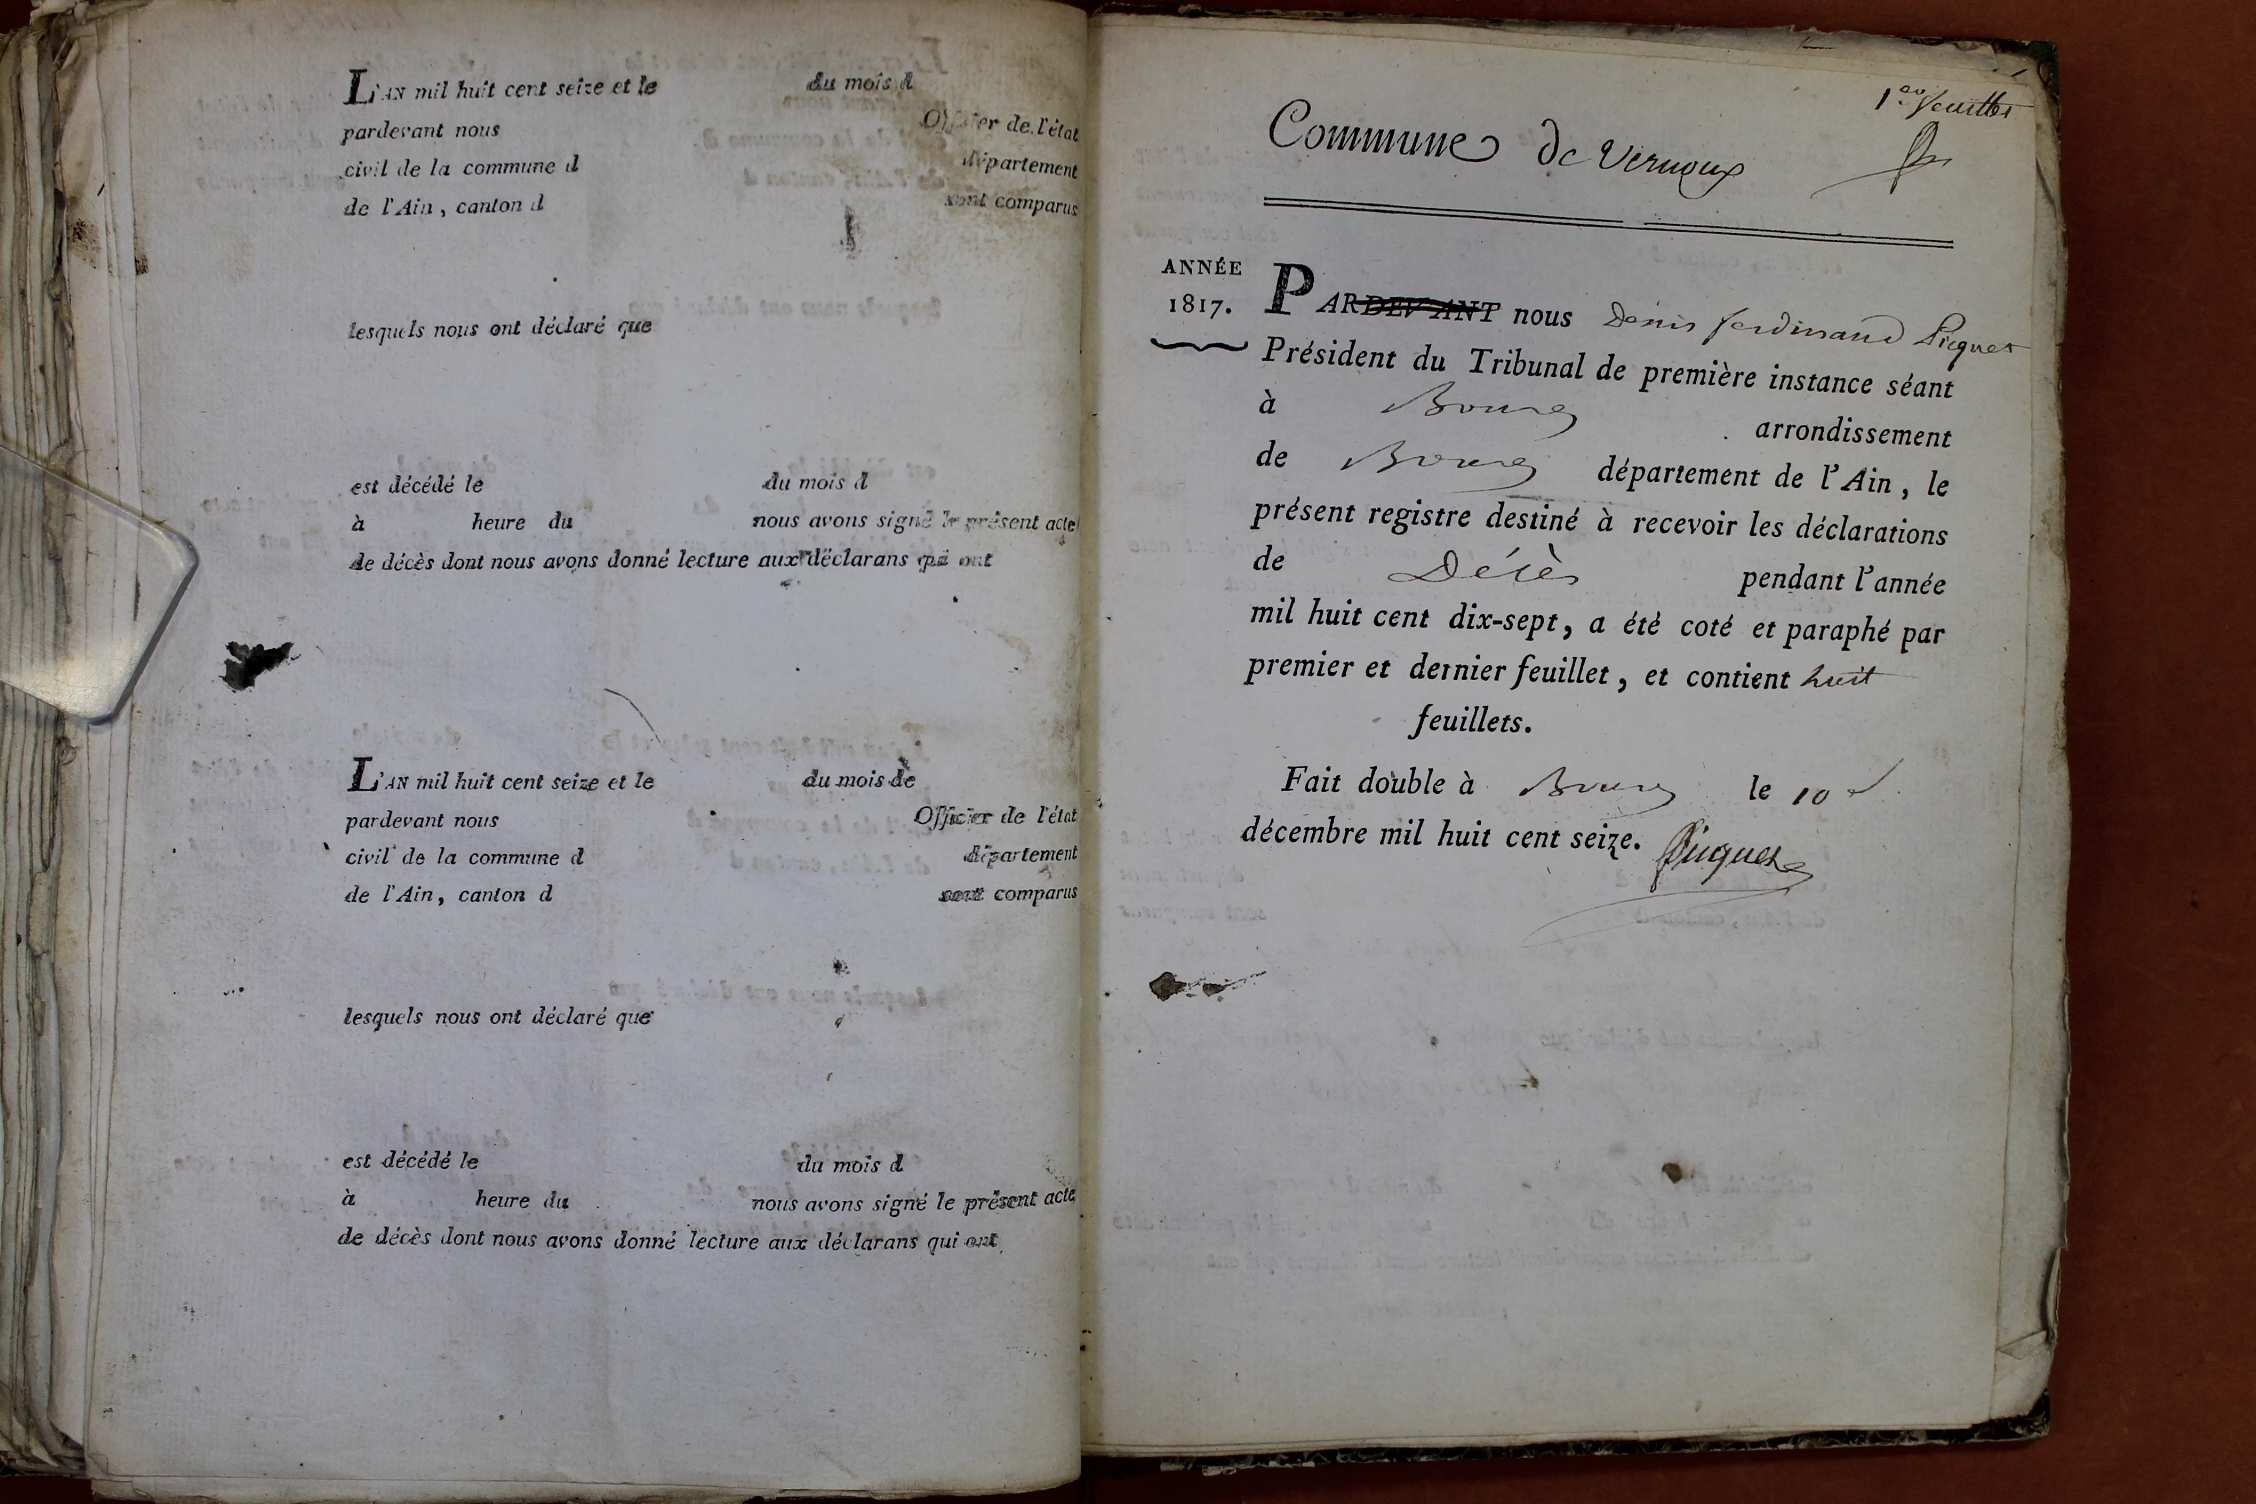 L'AN mil huit cent seize et le du mois d
pardevant nous Officier de l'état
civil de la commune d département
de l'Ain, canton d sont comparus
lesquels nous ont déclaré que
est décédé le du mois d
à heure du nous avons signé le présent acte
de décès dont nous avons donné lecture aux déclarans qui ont
L'AN mil huit cent seize et le du mois de
pardevant nous Officier de l'état
civil de la commune d département
de l'Ain, canton d sont comparus
lesquels nous ont déclaré que
est décédé le du mois d
à heure du nous avons signé le présent acte
de décès dont nous avons donné lecture aux déclarans qui ont
1er feuillet
Commune de Vernoux
ANNÉE
1817.
PARDEVANT nous Denis ferdinand Picquet
Président du Tribunal de première instance séant
à Bourg arrondissement
de Bourg département de l'Ain, le
présent registre destiné à recevoir les déclarations
de Décès pendant l'année
mil huit cent dix-sept, a été coté et paraphé par
premier et dernier feuillet, et contient huit
feuillets.
Fait double à Bourg le 10
décembre mil huit cent seize. Picquet